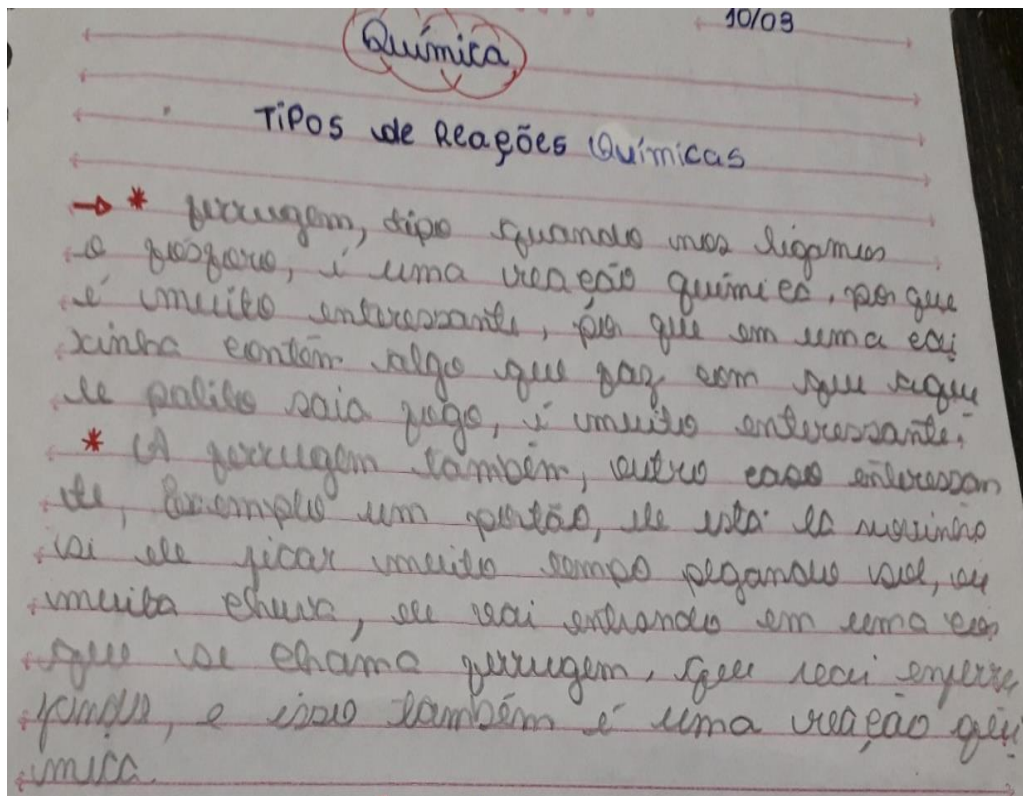 10/03
Química
Tipos de Reações Químicas
→ * ferrugem, tipo quando nos ligamos
o fósforo, é uma reação química, por que
é muito enteressante, por que em uma cai
xinha contém algo que faz com que aque
le palito saia fogo, é muito enteressante.
* A ferrugem também, outro caso enteressan
te, Exemplo um portão, ele está la novinho
si ele ficar muito tempo pegando sol, ou
muita chuva, ele vai entrando em uma
que se chama ferrugem, que vai enferru
jando, e isso também é uma reação quí
mica.